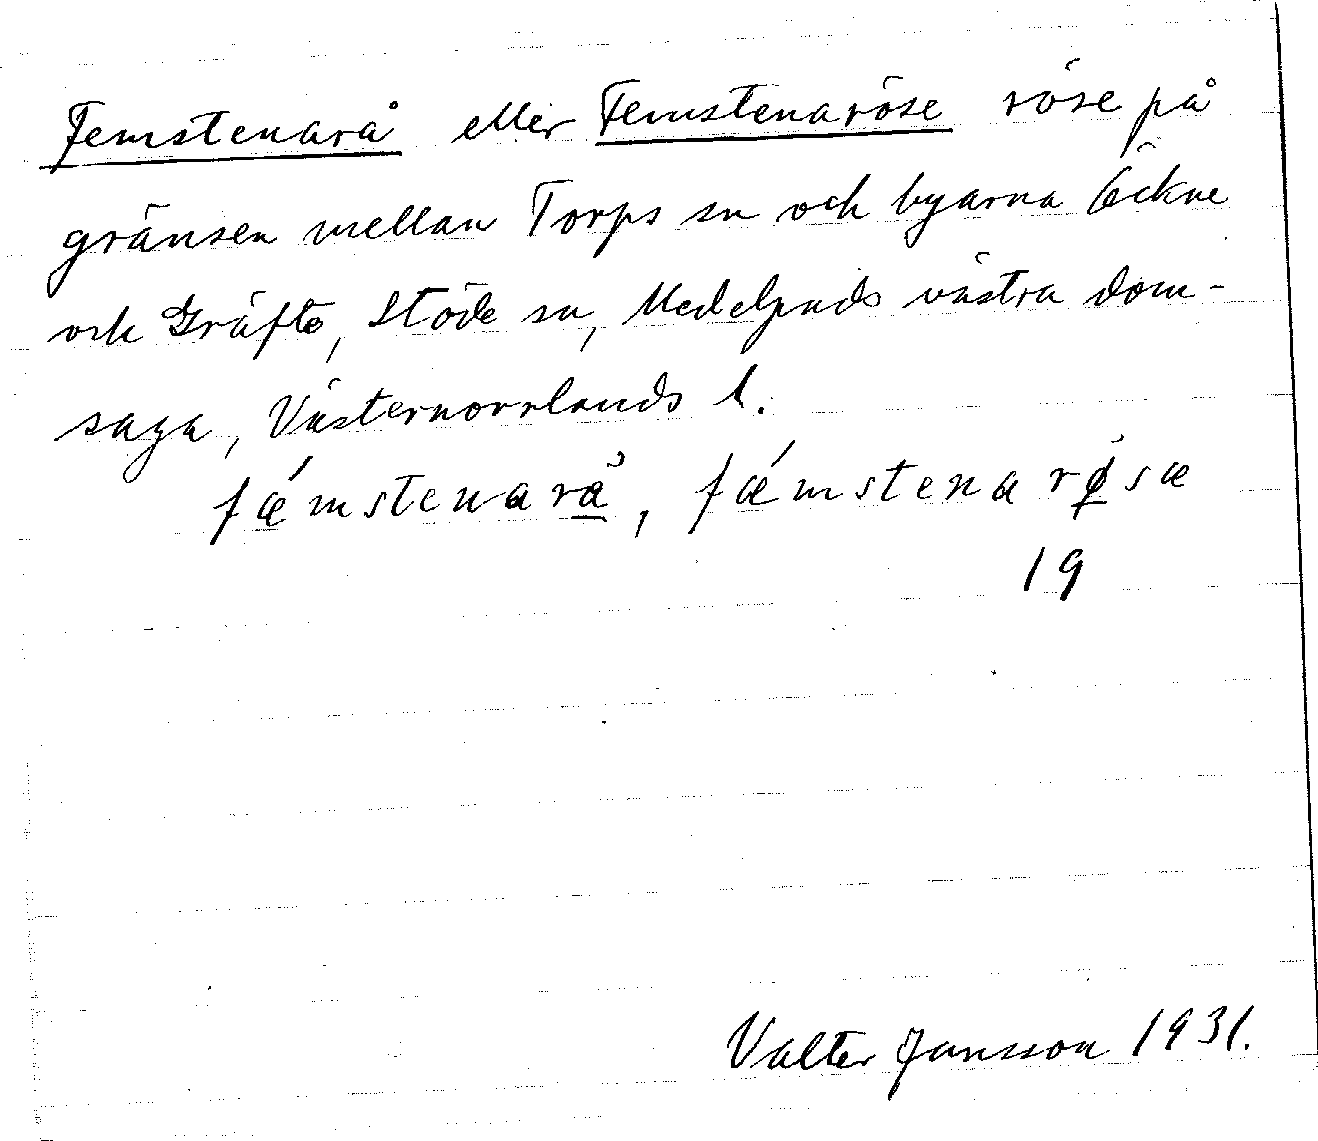 Femstenarå eller Femstenaröse röse på
gränsen mellan Torps sn och byarna Öckne
och Gräfte, Stöde sn, Medelpads västra dom-
saga, Västernorrlands l.
fǽmstenarå̀, fǽmstenarø̀sæ
19
Valter Jansson 1931.